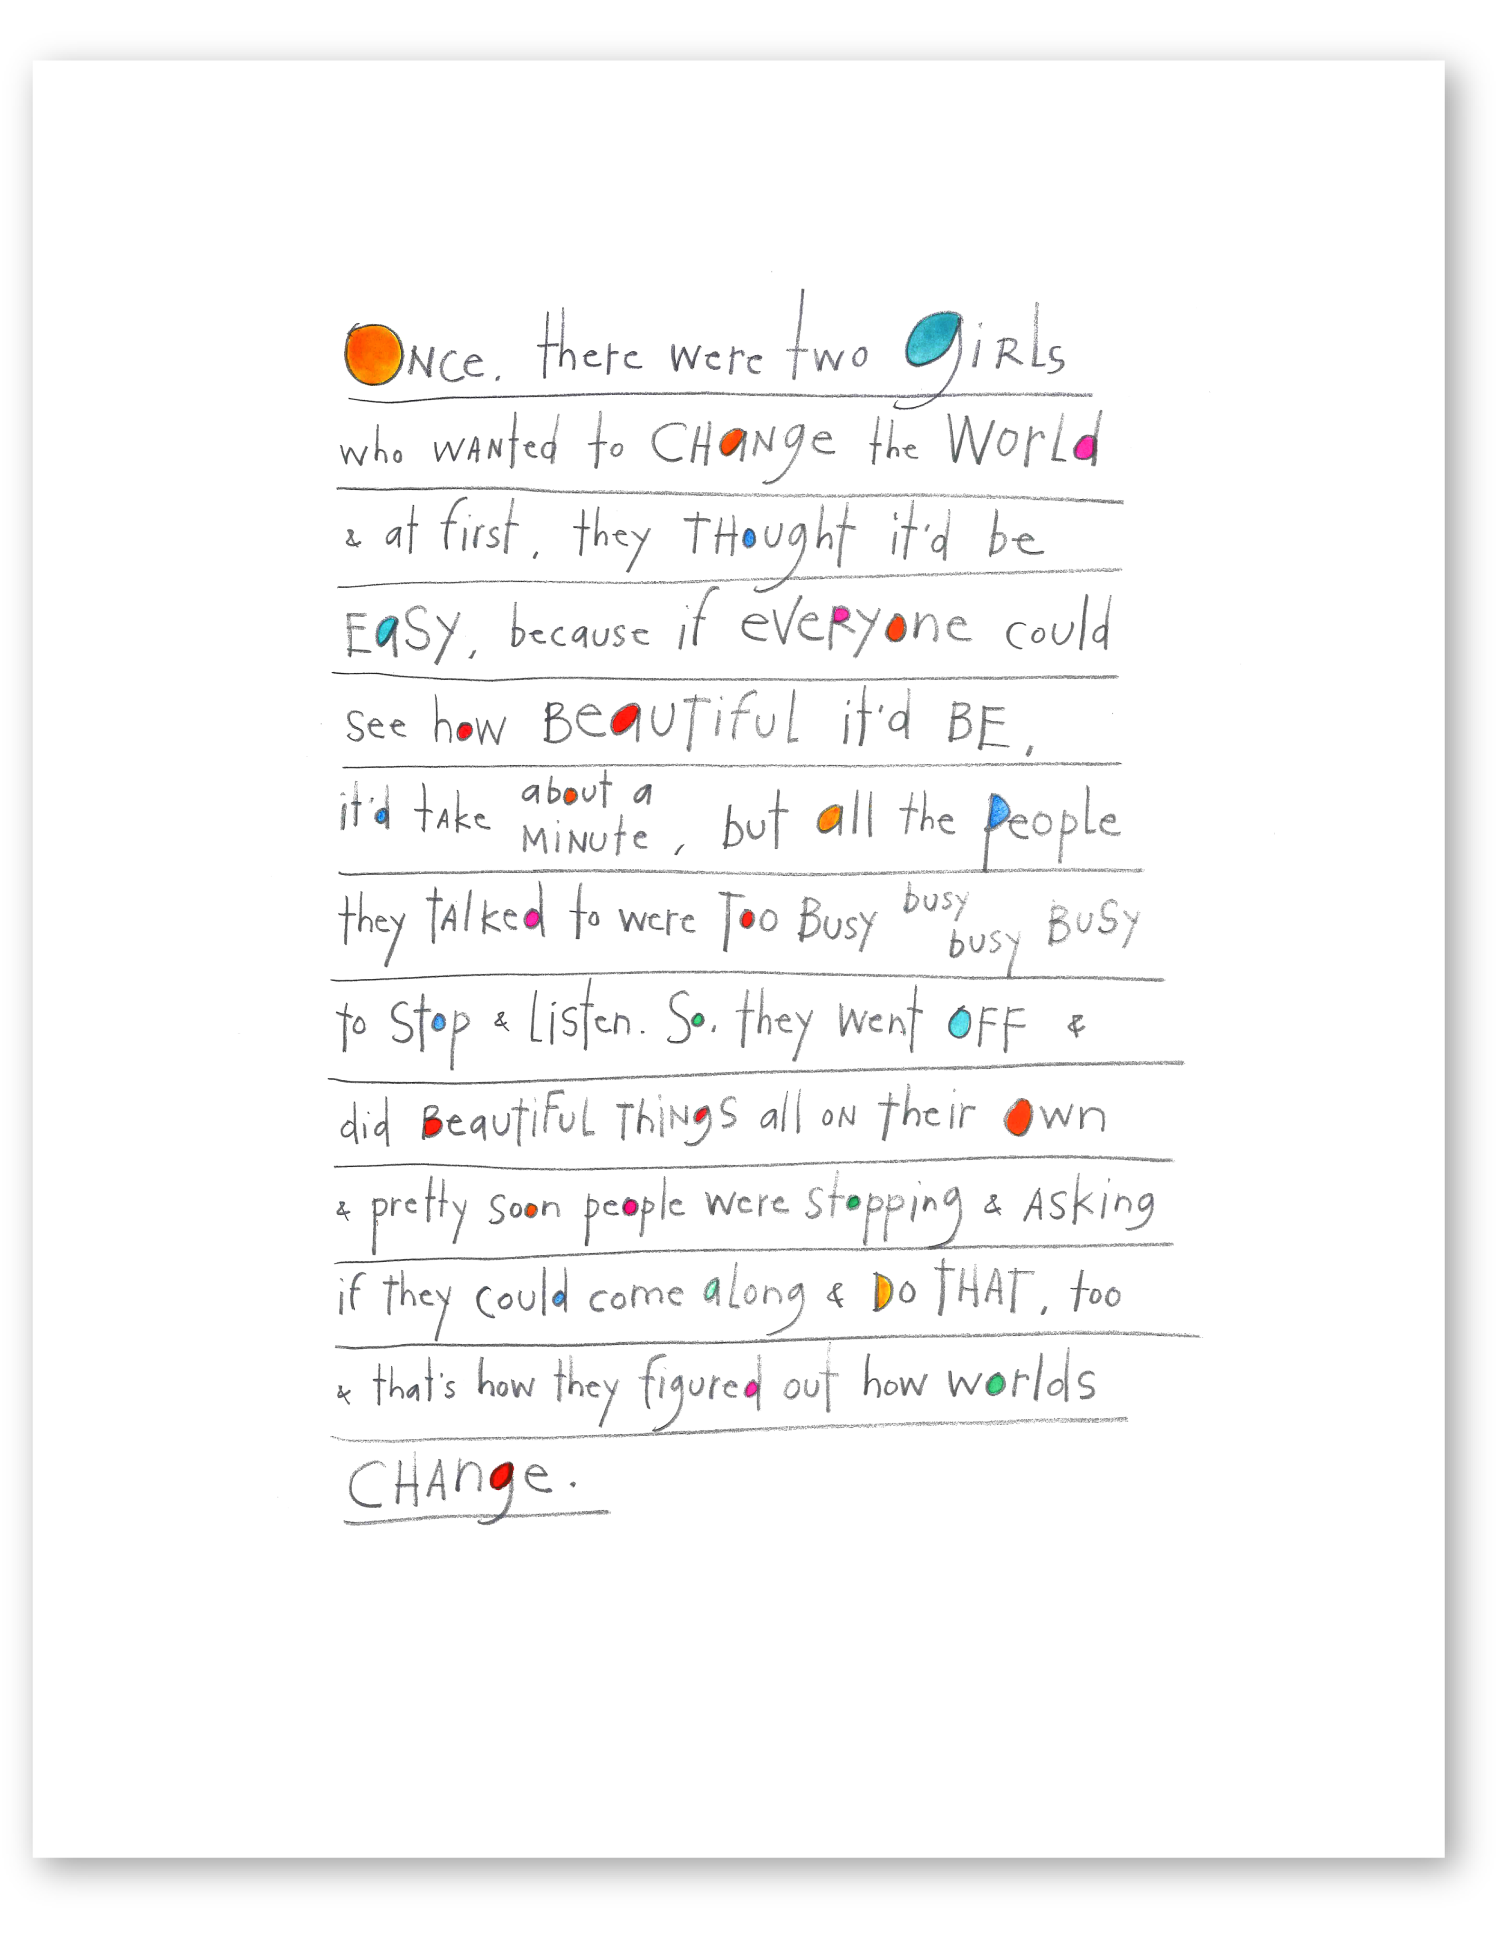 ONce, there were two giRls
who wANted to CHaNge the World
& at first, they THought it'd be
EaSy, because if eVeRyone could
see how BeauTiful it'd BE,
it'd tAke about a MiNute, but all the people
they tAlked to were Too Busy busy busy BuSy
to Stop & Listen. So, they went OFF &
did BeautiFuL ThiNgS all oN their Own
& pretty soon people were stopping & ASking
if they could come aLong & Do THAT, too
& that's how they figured out how worlds
CHAnge.